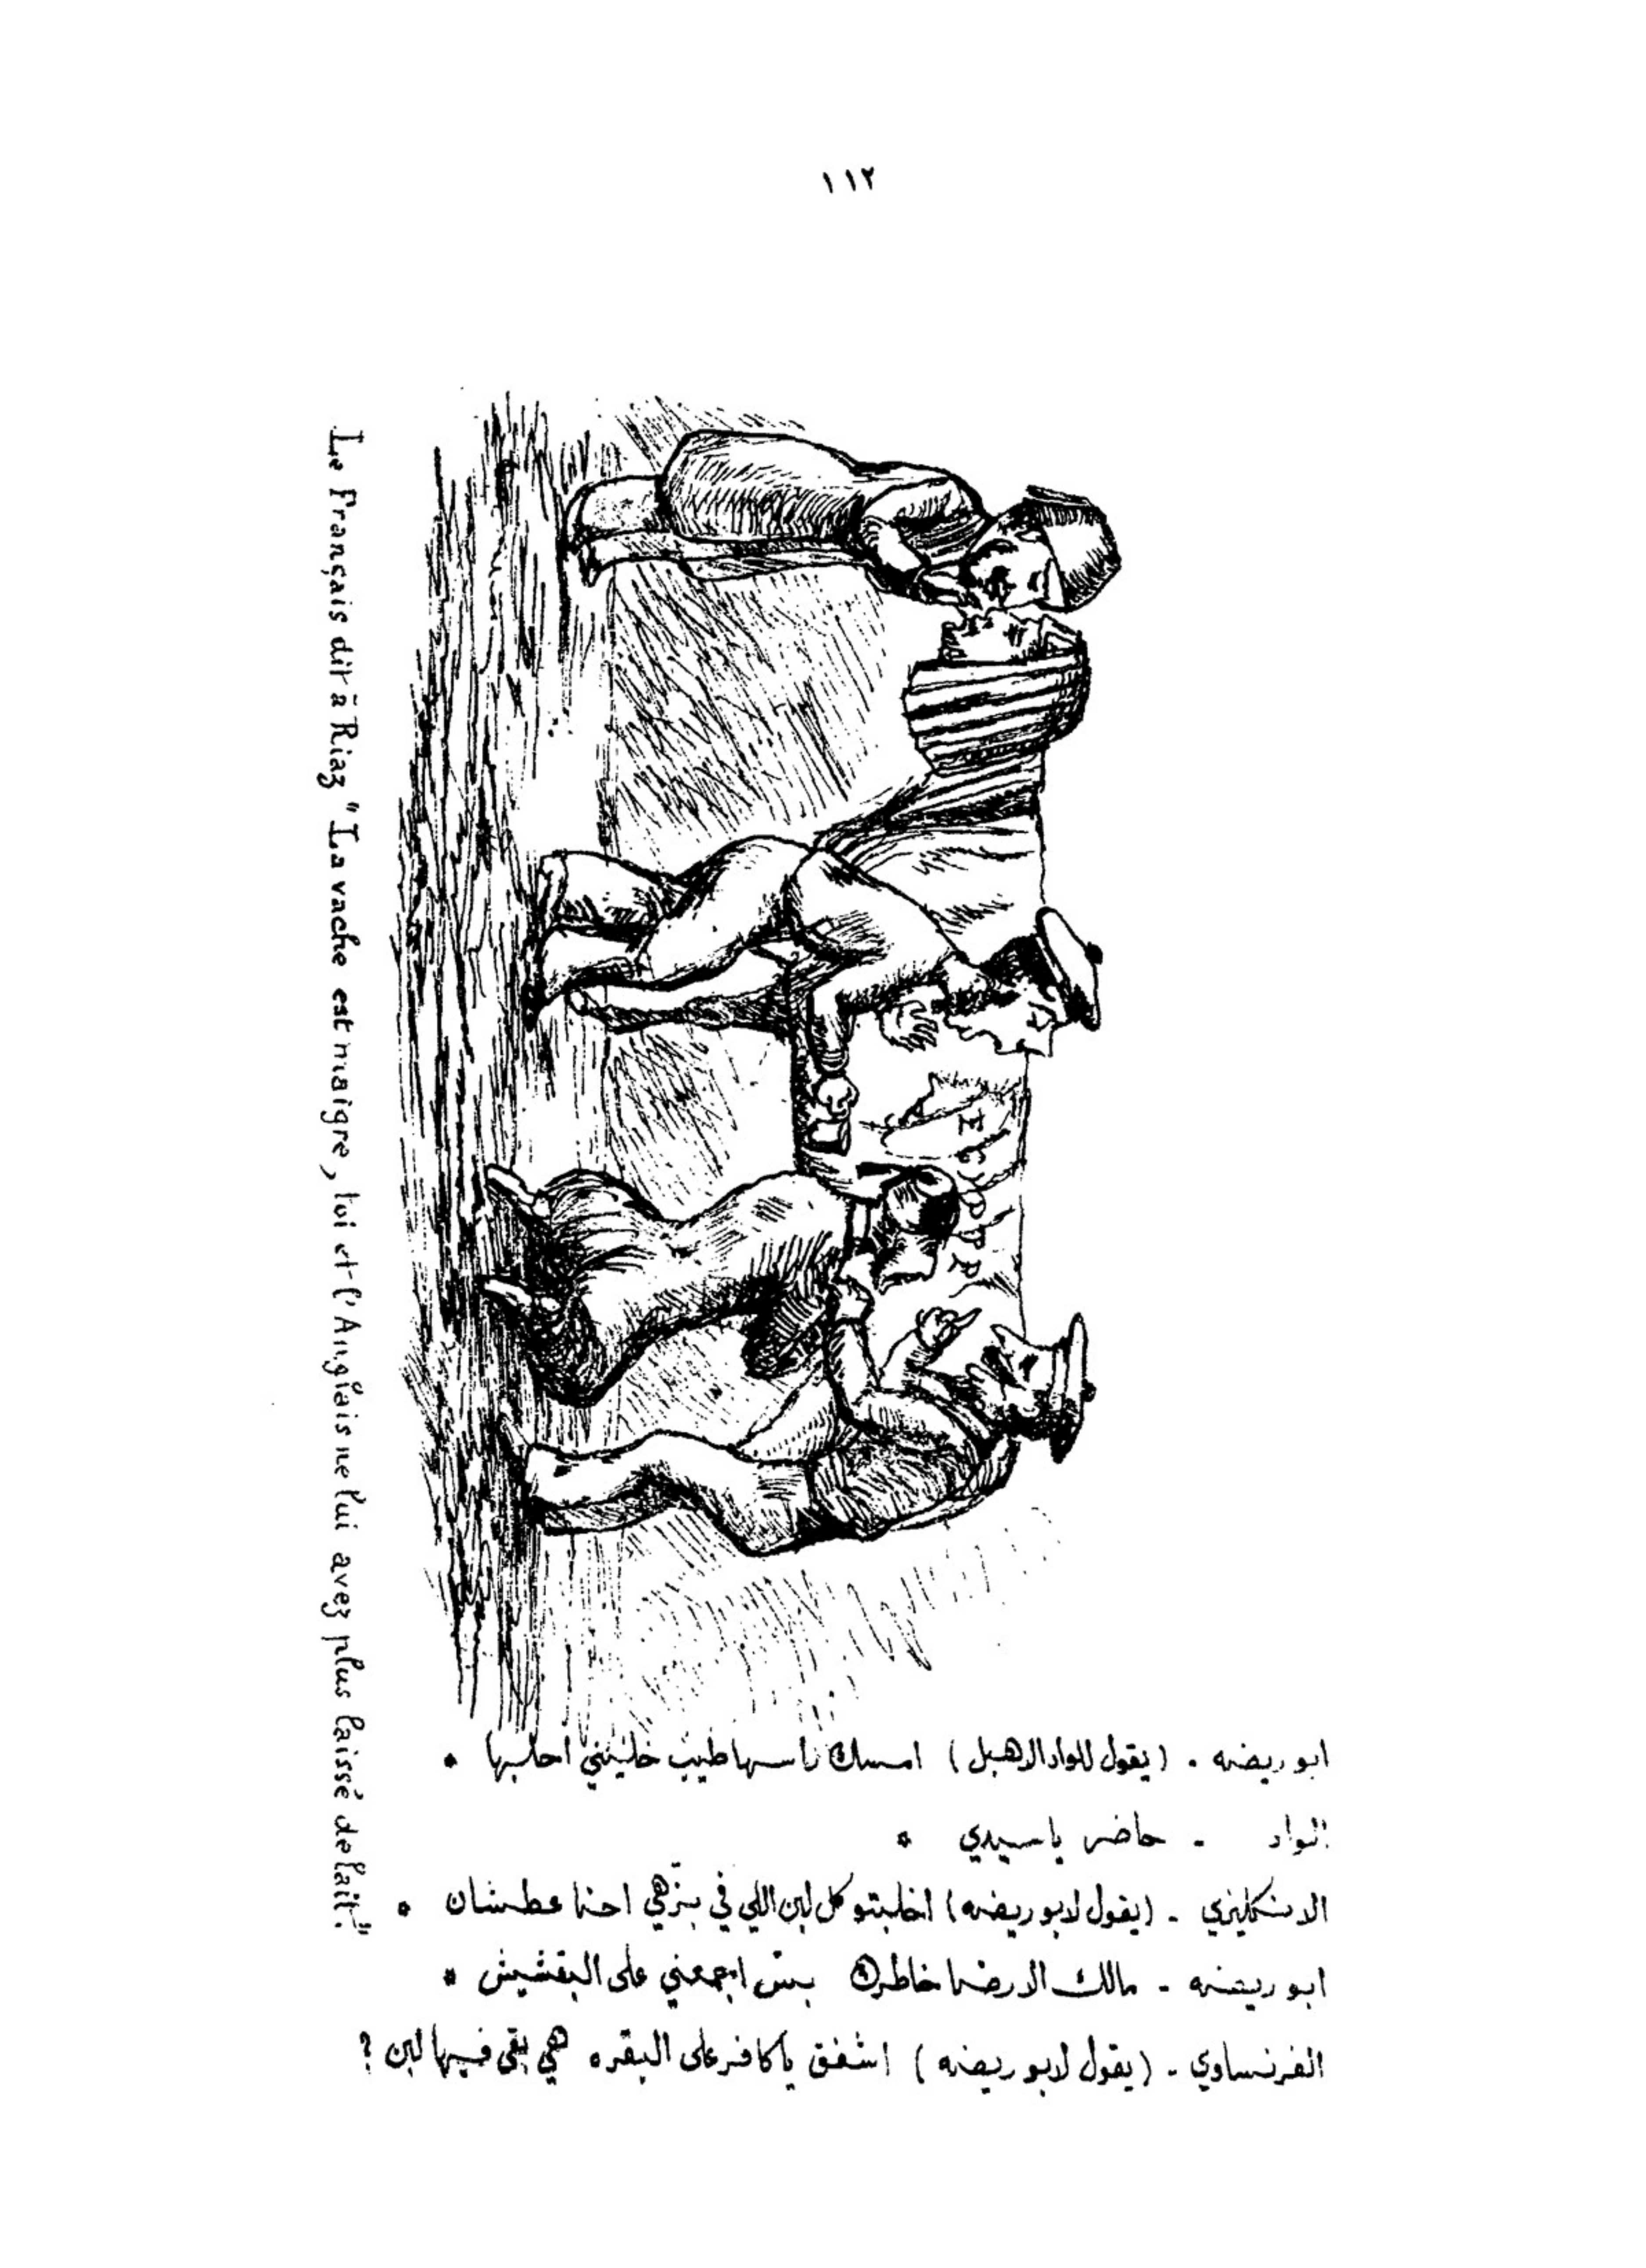 ١١٢
EGYPTE
Le Français dit à Riaz "La vache est maigre, toi et l'Anglais ne lui avez plus laissé de lait."
ابو ريضه . (يقول للواد الاهبل) امسك راسها طيب خليني احلبها *
الواد - حاضر ياسيدي *
الانكليزي - (يقول لابو ريضه) احلبتو كل لبن اللي في بزهي احنا عطشان *
ابو ريضه - مالك الا رضا خاطرك بس ابجعني على البقشيش *
الفرنساوي - (يقول لابو ريضه) اشفق ياكافر على البقره هي بقى فيها لبن ؟